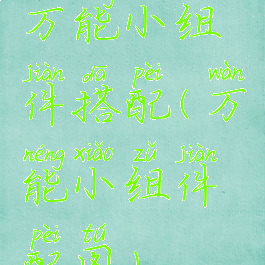 万能小组
jiàn dā pèi wàn
件搭配(万
néng xiǎo zǔ jiàn
能小组件
pèi tú
配图)